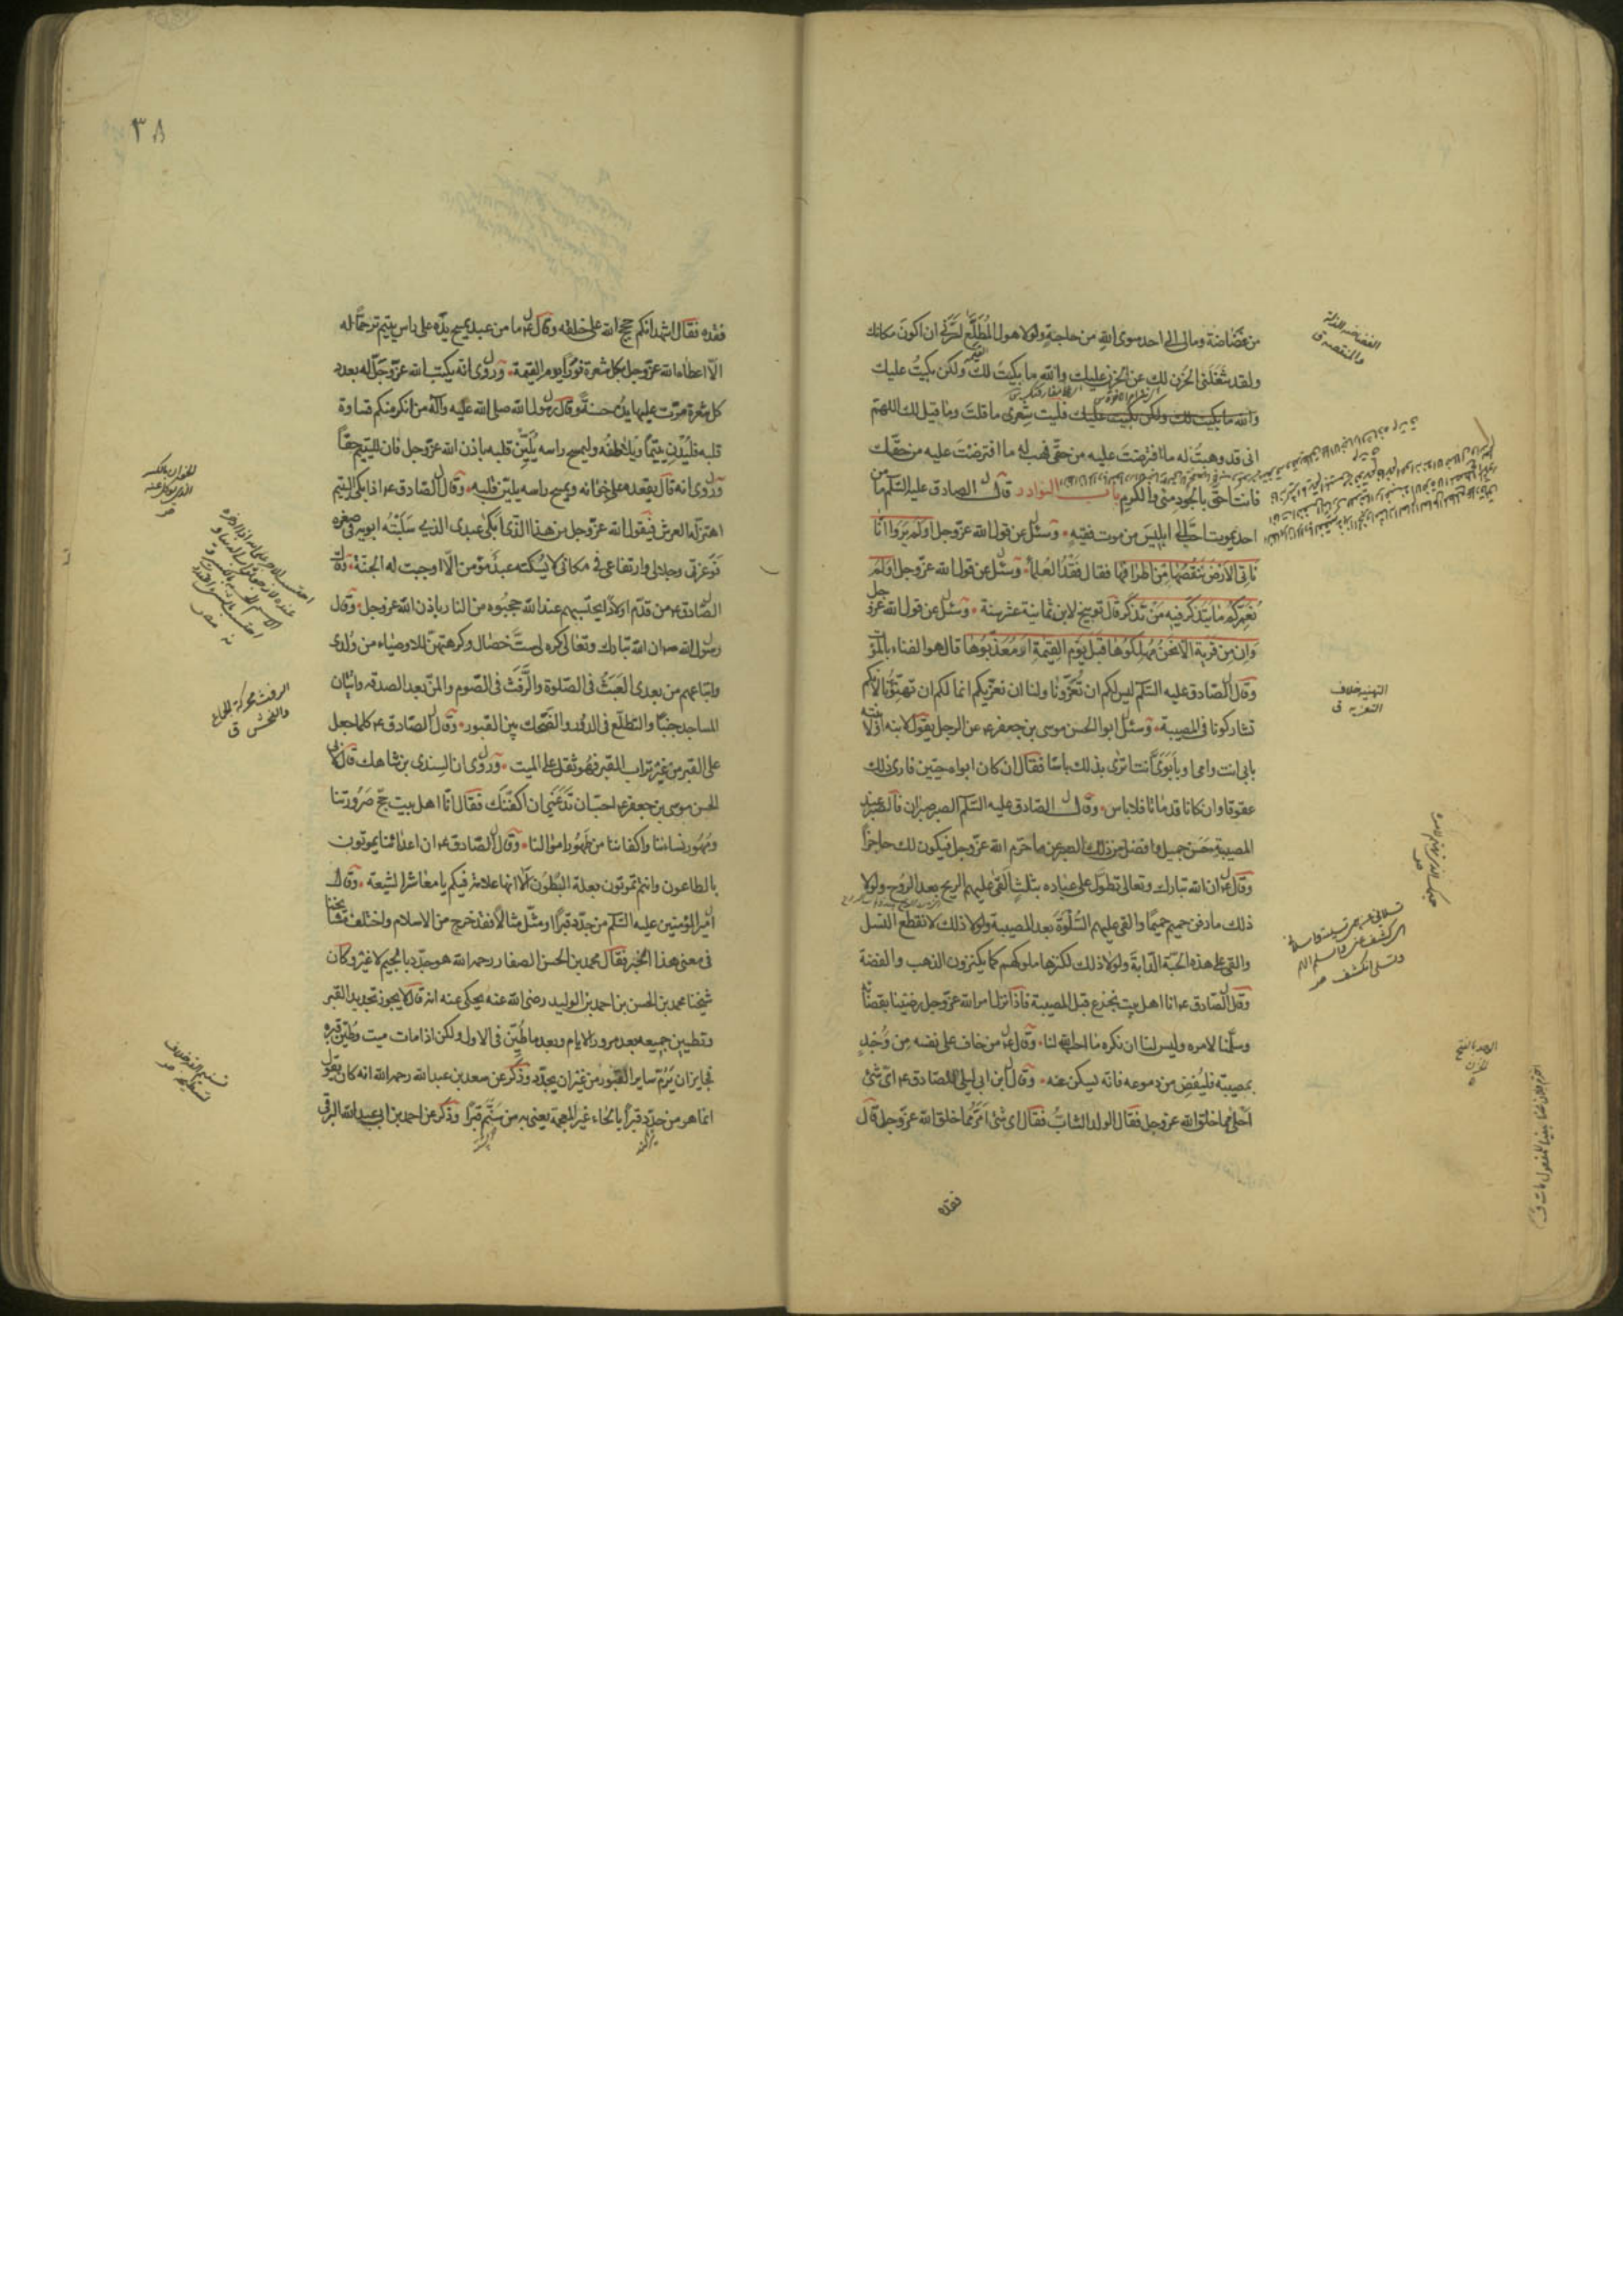 من غضاضة ومالى الى احد سوى الله من حاجة ولولا هول المُطّلَع لسرّنى ان اكونَ مكانك
ولقد شغلنى الحُزن لك عن الحُزن عليك والله ما بكيتُ لك ولكن بكيتُ عليك
والله ما بكيت لك ولكن بكيت عليك فليت شِعرى ما قلتَ وما قيل لك اللهمّ
انى قد وهبتُ له ما افترضتَ عليه من حقّى فهب له ما افترضْتَ عليه من حقّك
فانت احقّ بالجود منى والكرم باب النوادر قال الصادق عليه السّلم ما من
احد يموت احبّ الى ابليسَ من موت فقيهٍ وسئل عن قول الله عزّ وجل اولم يروا انّا
نأتى الارض ننقُصها مِن اطرافها فقال فَقْدُ العُلمآء وسئل عن قول الله عزّ وجل اولم
نعمّركم ما يتذكّر فيه مَن تذكّر قال توبيخ لابن ثمانية عشر سنة وسئل عن قول الله عزّ وجل
وان من قرية الّا نحنُ مُهلكوها قبل يوم القيٰمة او معذّبوها قال هو الفناء بالموت
وقال الصّادق عليه السّلم ليس لكم ان تُعزّونا ولنا ان نعزّيكم انما لكم ان تهنّؤنا لانّكم
تشاركونا فى المصيبة وسئل ابو الحسن موسى بن جعفر ع عن الرجل يقول لابنه او لابنته
بابى انت وامى او بابَوَىّ انت اترى بذلك باسًا فقال ان كان ابواه حيّين فارى ذلك
عقوقا وان كانا قد ماتا فلا باس وقال الصّادق عليه السّلم الصبر صبران فالصّبر عند
المصيبة حَسَن جميل وافضل من ذلك الصبر عن ما حرّم الله عزّ وجل فيكون لك حاجزًا
وقال ع ان الله تبارك وتعالى تطوّل على عباده بثلثٍ القى عليهم الريح بعد الرّوح ولولا
ذلك ما دفن حميم حميمًا والقى عليهم السُّلْوَةَ بعد المصيبة ولولا ذلك لانقطع النسل
والقى على هذه الحبّة الدّابة ولولا ذلك لكنزها ملوكهم كما يكنزون الذهب والفضة
وقال الصّادق ع انا اهل بيت نجزع قبل المصيبة فاذا نزل امر الله عزّ وجل رضينا بقضائه
وسلّمنا لامره وليس لنا ان نكره ما احبّ الله لنا وقال ع من خاف على نفسه مِن وَجْدٍ
بمصيبة فليُفِض من دموعه فانه يسكن عنه وقال ابن ابى ليلى للصادق ع اىّ شئ
احلى مما خلق الله عزّ وجل فقال الولد الشابّ فقال اى شئ امرّ مما خلق الله عزّ وجل قال
فقده
التهنية خلاف
التعزية ق
٣٨
فقده فقال اشهد انكم حجج الله على خلقه وقال ع ما من عبد يمسح يدَه على راس يتيم ترحّمًا له
الّا اعطاه الله عزّ وجل بكل شعرة نورًا يوم القيمة وروى انه يكتب الله عزّ وجلّ له بعدد
كل شعرة مرّت عليها يده حسنةً وقال رسول الله صلى الله عليه وآله من انكر منكم قساوة
قلبه فليُدْنِ يتيمًا ويلاطفه وليمسح راسه يُلَيَّن قلبه باذن الله عزّ وجل فان لليتيم حقّا
وروى انه قال يقعده على خوانه ويمسح راسه يلين قلبه وقال الصّادق ع اذا بكى اليتيم
اهتزّ له العرش فيقول الله عزّ وجل من هذا الذى ابكى عبدى الذى سلبتُه ابويه فى صغره
فوعزّتى وجلالى وارتفاعى فى مكانى لا يُسْكته عبدٌ مؤمن الّا اوجبت له الجنّة وقال
الصّادق ع من قدّم اولادًا يحتسبهم عند الله حجبُوه من النار باذن الله عزّ وجل وقال
رسول الله ص ان الله تبارك وتعالى كره لى ستّ خصال وكرهتهنّ للاوصياء من ولدى
واتباعهم من بعدى العَبَثُ فى الصّلوة والرَّفَث فى الصّوم والمنّ بعد الصدقه واتيان
المساجد جنبًا والتطلّع فى الدّور والضّحك بين القبور وقال الصّادق ع كلما جعل
على القبر من غير تراب القبر فهو ثقل على الميت وروى ان السِّندى بن شاهك قال لابى
الحسن موسى بن جعفر ع احبّ ان تَدَعَنى ان اُكفّنك فقال انّا اهل بيت حجّ صَرُورتنا
ومُهور نسائنا واكفاننا من طَهُور اموالنا وقال الصّادق ع ان اعدائنا يموتون
بالطاعون وانتم تموتون بعلة البُطُون اَلَا انها علامة فيكم يا معاشر الشيعة وقال
امير المؤمنين عليه السّلم من جدّد قبرًا او مثّل مثالًا فقد خرج من الاسلام واختلف مشايخنا
فى معنى هذا الخبر فقال محمد بن الحسن الصفار رحمه الله هو جدّد بالجيم لا غير وكان
شيخنا محمد بن الحسن بن احمد بن الوليد رضى الله عنه يحكى عنه انه قال لا يجوز تجديد القبر
وتطيين جميعه بعد مرور الايام وبعد ما طُيّن فى الاول ولكن اذا مات ميت وطُيّن قبره
فجايز ان يَرُمّ ساير القبور من غير ان يجدّد وذكر عن سعد بن عبد الله رحمه الله انه كان يقول
انما هو من حدّد قبرًا بالحاء غير المعجمة يعنى به من سَنّم قبرًا وذكر عن احمد بن ابى عبد الله البرقى
الرفث محركة الجماع
والفحش ق